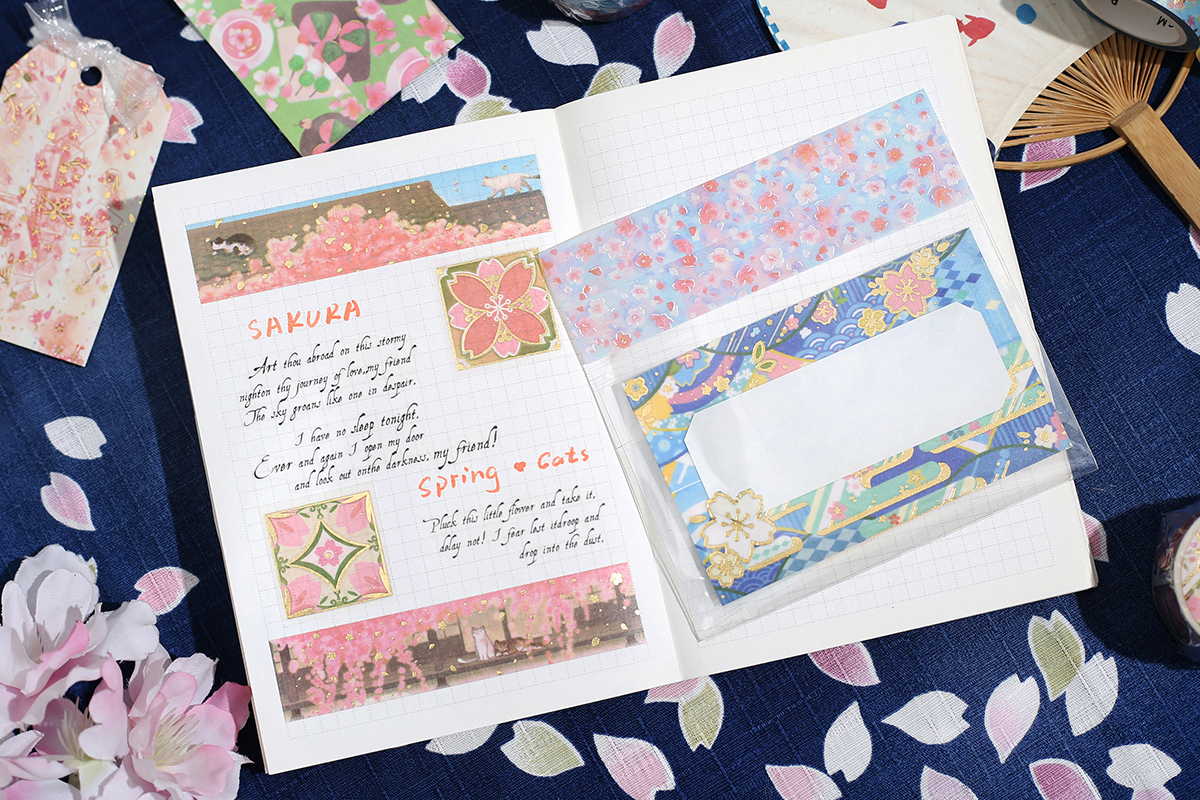 SAKURA
Art thou abroad on this stormy
nighton thy journey of love,my friend
The sky groans like one in despair.
I have no sleep tonight.
Ever and again I open my door
and look out onthe darkness, my friend!
Spring ♥ Cats
Pluck this little flower and take it,
delay not! I fear lest itdroop and
drop into the dust.